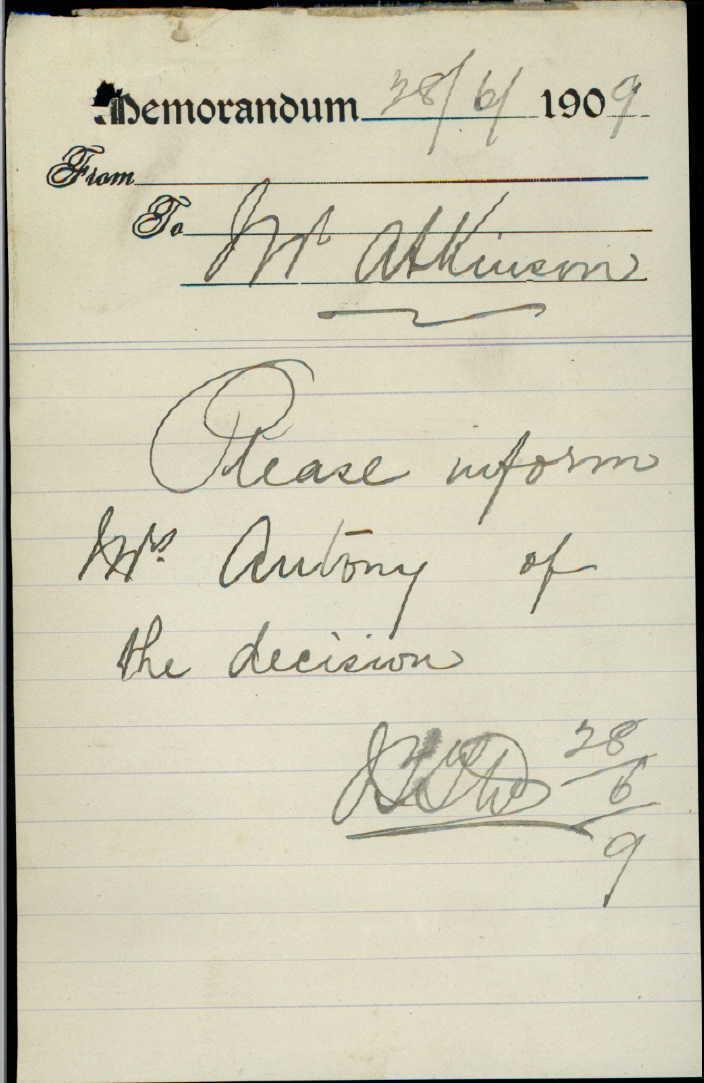 Memorandum 28/6/ 1909
From
To
Mr Atkinson
Please inform
Mrs Antony of
the decision
28
6
9